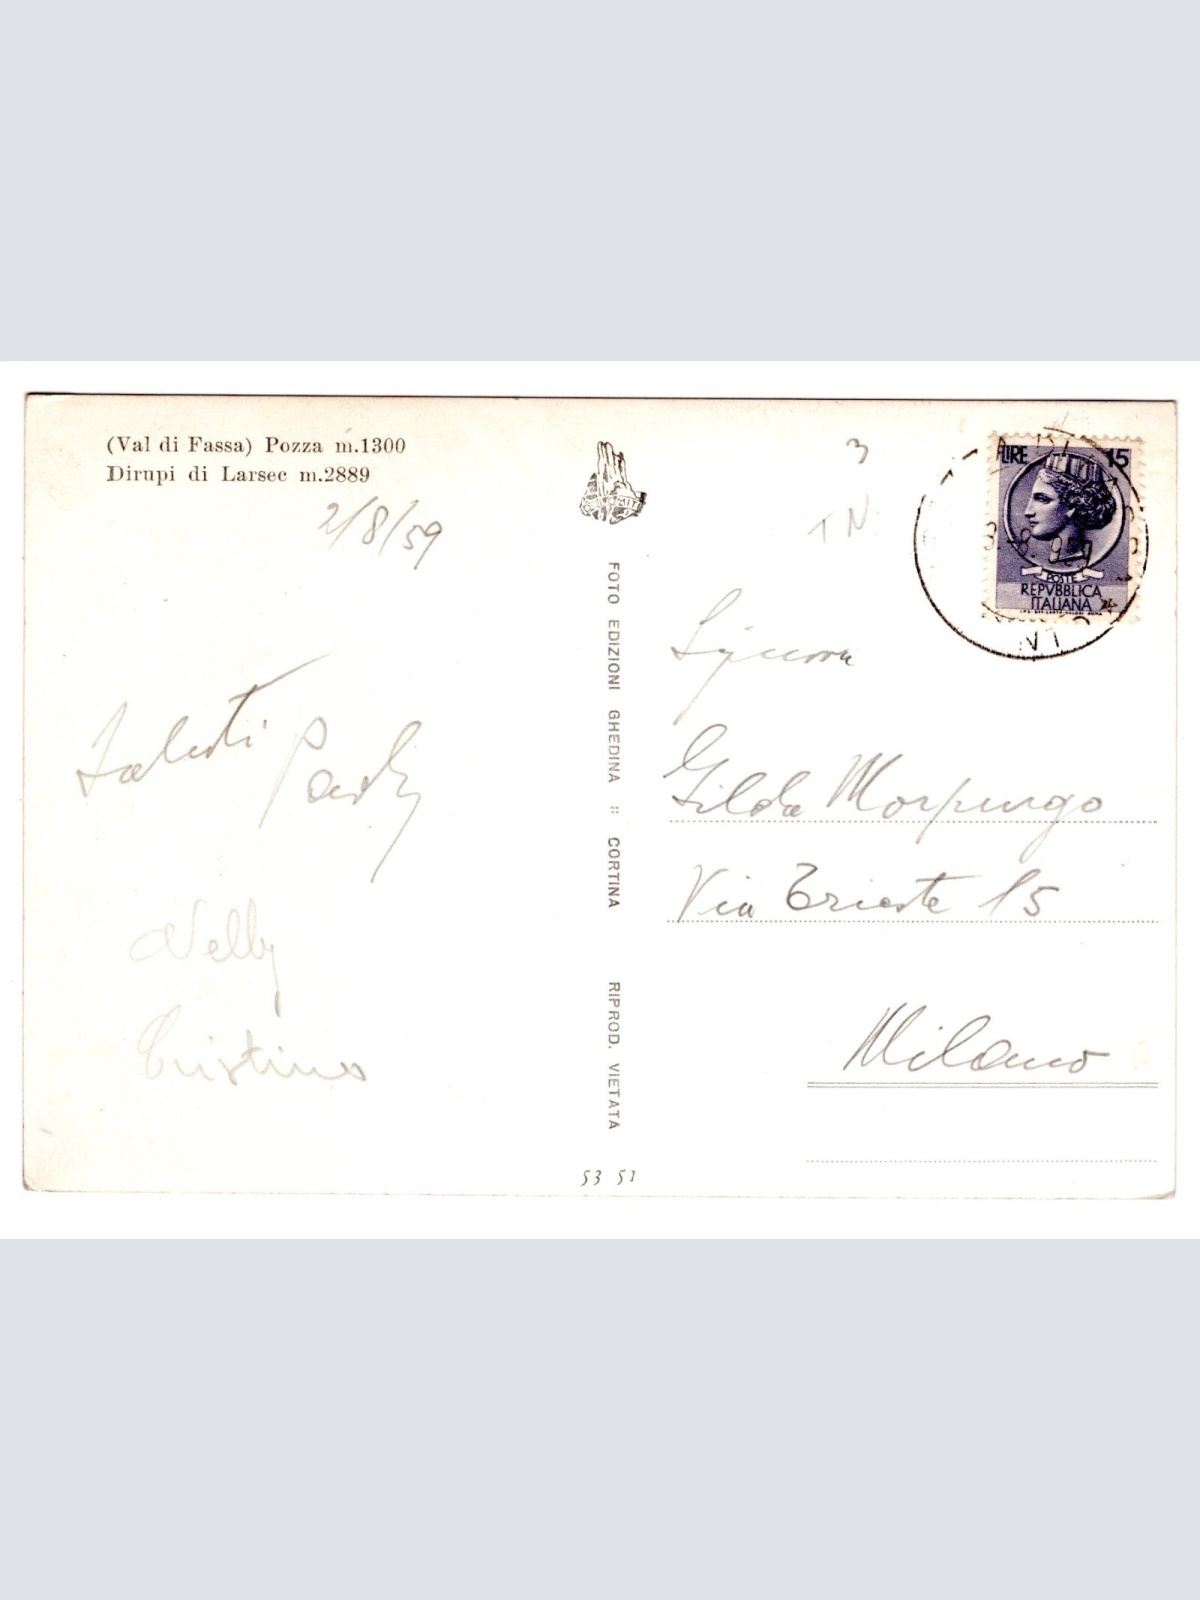 (Val di Fassa) Pozza m.1300
Dirupi di Larsec m.2889
2/8/59
Saluti
Nelly
Cristina
FOTO EDIZIONI GHEDINA :: CORTINA RIPROD. VIETATA
53 53
3
TN
LIRE 15
POSTE
REPVBBLICA
ITALIANA
Signora
Gilda Morpurgo
Via Trieste 15
Milano